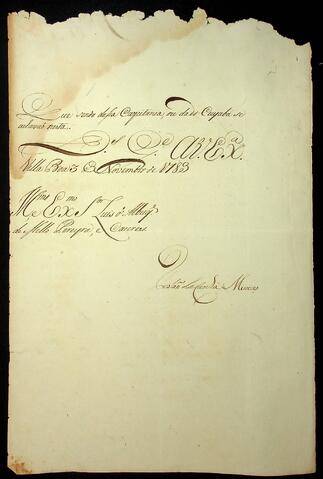 Que sendo dessa Capitania, ou da do Cuyaba se
D.s G.de a V. Ex.a
Villa Boa 3 de Novembro de 1783
Ill.mo e Ex.mo S.r Luis d' Albuq.
de Mello Pereyra, e Caceres
da Cunha Menezes